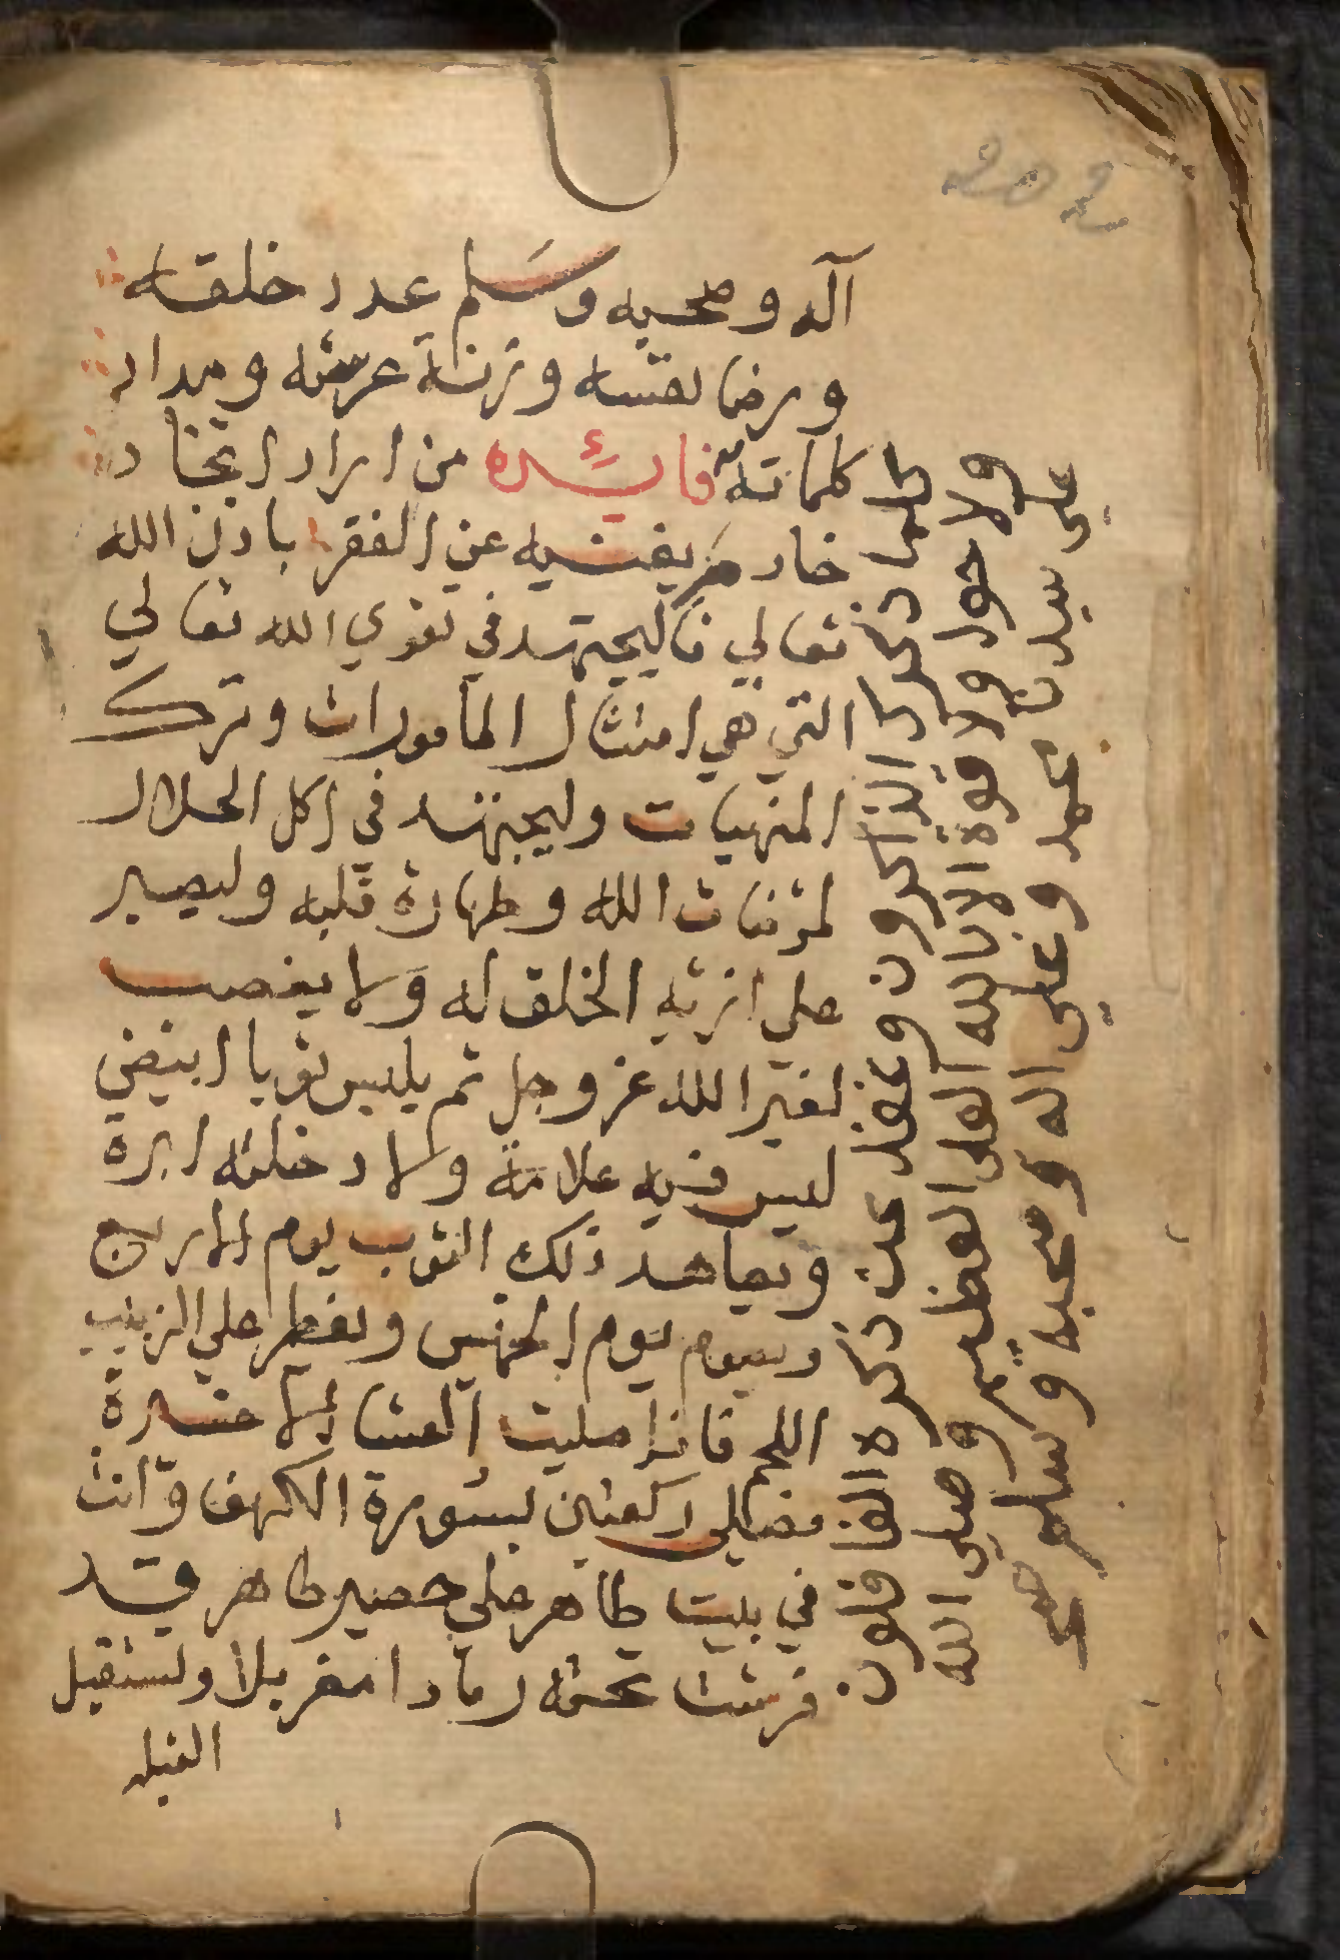 202
آله وصحبه وسلم عدد خلقه
ورضا نفسه وزنة عرشه ومداد
كلماته فائده من اراد اتخاذ
خادم يغنيه عن الفقر باذن الله
تعالي فاليجتهد في تقوي الله تعالي
التي هي امتثال المأمورات وترك
المنهيات وليجتهد في اكل الحلال
لمرضات الله وطهارة قلبه وليصبر
علي اذيه الخلق له ولا يغضب
لغير الله عز وجل ثم يلبس ثوبا ابيض
ليس فيه علامة ولا دخلته ابرة
وتعاهد ذلك الثوب يوم الاربع
وصوم يوم الخميس وتفطر علي الزبيب
فاذا صليت العشا الاخرة
فصلي ركعتين بسورة الكهف وانت
في بيت طاهر علي حصير طاهر قد
فرشت تحته رمادا مغربلا وتستقبل
القبله
كلما ذكرك الذاكرون وغفل عن ذكره الغافلون
ولا حول ولا قوة الا بالله العلى العظيم وصلى الله
على سيدنا محمد وعلى اله وصحبه وسلم